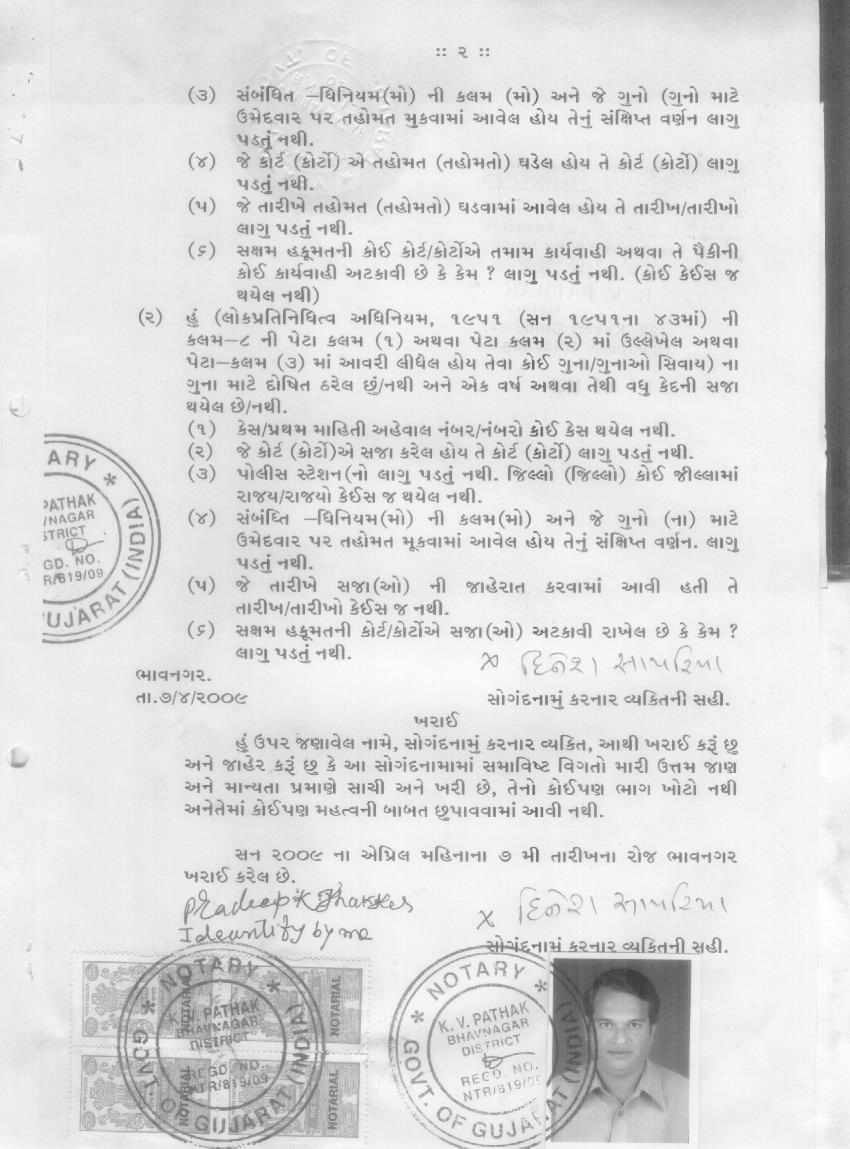 :: ૨ ::
(૩) સંબંધિત –ધિનિયમ(મો) ની કલમ (મો) અને જે ગુનો (ગુનો માટે
ઉમેદવાર પર તહોમત મુકવામાં આવેલ હોય તેનું સંક્ષિપ્ત વર્ણન લાગુ
પડતું નથી.
(૪) જે કોર્ટ (કોર્ટો) એ તહોમત (તહોમતો) ઘડેલ હોય તે કોર્ટ (કોર્ટો) લાગુ
પડતું નથી.
(૫) જે તારીખે તહોમત (તહોમતો) ઘડવામાં આવેલ હોય તે તારીખ/તારીખો
લાગુ પડતું નથી.
(૬) સક્ષમ હકૂમતની કોઈ કોર્ટ/કોર્ટોએ તમામ કાર્યવાહી અથવા તે પૈકીની
કોઈ કાર્યવાહી અટકાવી છે કે કેમ ? લાગુ પડતું નથી. (કોઈ કેઈસ જ
થયેલ નથી)
(૨) હું (લોકપ્રતિનિધિત્વ અધિનિયમ, ૧૯૫૧ (સન ૧૯૫૧ના ૪૩માં) ની
કલમ–૮ ની પેટા કલમ (૧) અથવા પેટા કલમ (૨) માં ઉલ્લેખેલ અથવા
પેટા–કલમ (૩) માં આવરી લીધેલ હોય તેવા કોઈ ગુના/ગુનાઓ સિવાય) ના
ગુના માટે દોષિત ઠરેલ છું/નથી અને એક વર્ષ અથવા તેથી વધુ કેદની સજા
થયેલ છે/નથી.
(૧) કેસ/પ્રથમ માહિતી અહેવાલ નંબર/નંબરો કોઈ કેસ થયેલ નથી.
(૨) જે કોર્ટ (કોર્ટો)એ સજા કરેલ હોય તે કોર્ટ (કોર્ટો) લાગુ પડતું નથી.
(૩) પોલીસ સ્ટેશન(નો લાગુ પડતું નથી. જિલ્લો (જિલ્લો) કોઈ જીલ્લામાં
રાજય/રાજયો કેઈસ જ થયેલ નથી.
(૪) સંબંધ્તિ –ધિનિયમ(મો) ની કલમ(મો) અને જે ગુનો (ના) માટે
ઉમેદવાર પર તહોમત મૂકવામાં આવેલ હોય તેનું સંક્ષિપ્ત વર્ણન. લાગુ
પડતું નથી.
(૫) જે તારીખે સજા(ઓ) ની જાહેરાત કરવામાં આવી હતી તે
તારીખ/તારીખો કેઈસ જ નથી.
(૬) સક્ષમ હકૂમતની કોર્ટ/કોર્ટોએ સજા(ઓ) અટકાવી રાખેલ છે કે કેમ ?
લાગુ પડતું નથી.
x દિનેશ સાપરિયા
ભાવનગર.
તા.૭/૪/૨૦૦૯ સોગંદનામું કરનાર વ્યકિતની સહી.
ખરાઈ
હું ઉપર જણાવેલ નામે, સોગંદનામું કરનાર વ્યકિત, આથી ખરાઈ કરૂં છુ
અને જાહેર કરૂં છુ કે આ સોગંદનામામાં સમાવિષ્ટ વિગતો મારી ઉત્તમ જાણ
અને માન્યતા પ્રમાણે સાચી અને ખરી છે, તેનો કોઈપણ ભાગ ખોટો નથી
અનેતેમાં કોઈપણ મહત્વની બાબત છુપાવવામાં આવી નથી.
સન ૨૦૦૯ ના એપ્રિલ મહિનાના ૭ મી તારીખના રોજ ભાવનગર
ખરાઈ કરેલ છે.
Pradeep K
x દિનેશ સાપરિયા
Ideuntify by me
સોગંદનામું કરનાર વ્યકિતની સહી.
ARY *
PATHAK
/NAGAR
STRICT
GD. NO.
TR/819/09
GUJARAT (INDIA)
* NOTARY *
GOVT. OF GUJARAT (INDIA)
K. V. PATHAK
BHAVNAGAR
DISTRICT
REGD. NO.
NTR/819/09
NOTARIAL
NOTARIAL
NOTARIAL
NOTARIAL
* NOTARY *
GOVT. OF GUJARAT (INDIA)
K. V. PATHAK
BHAVNAGAR
DISTRICT
REGD. NO.
NTR/819/09